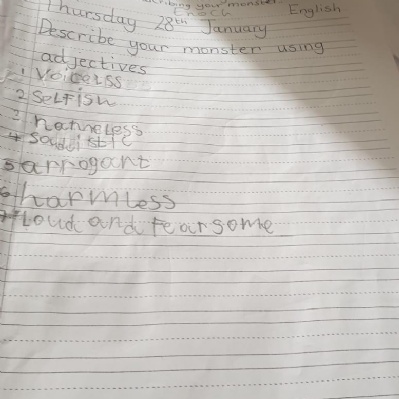 describing your monster
Enoch English
Thursday 28th January
Describe your monster using
adjectives
1 Voicelss
2 SeLFiSh
3 nameless
4 Sadistic
5 arrogant
6 harmless
7 Loud and Fearsome